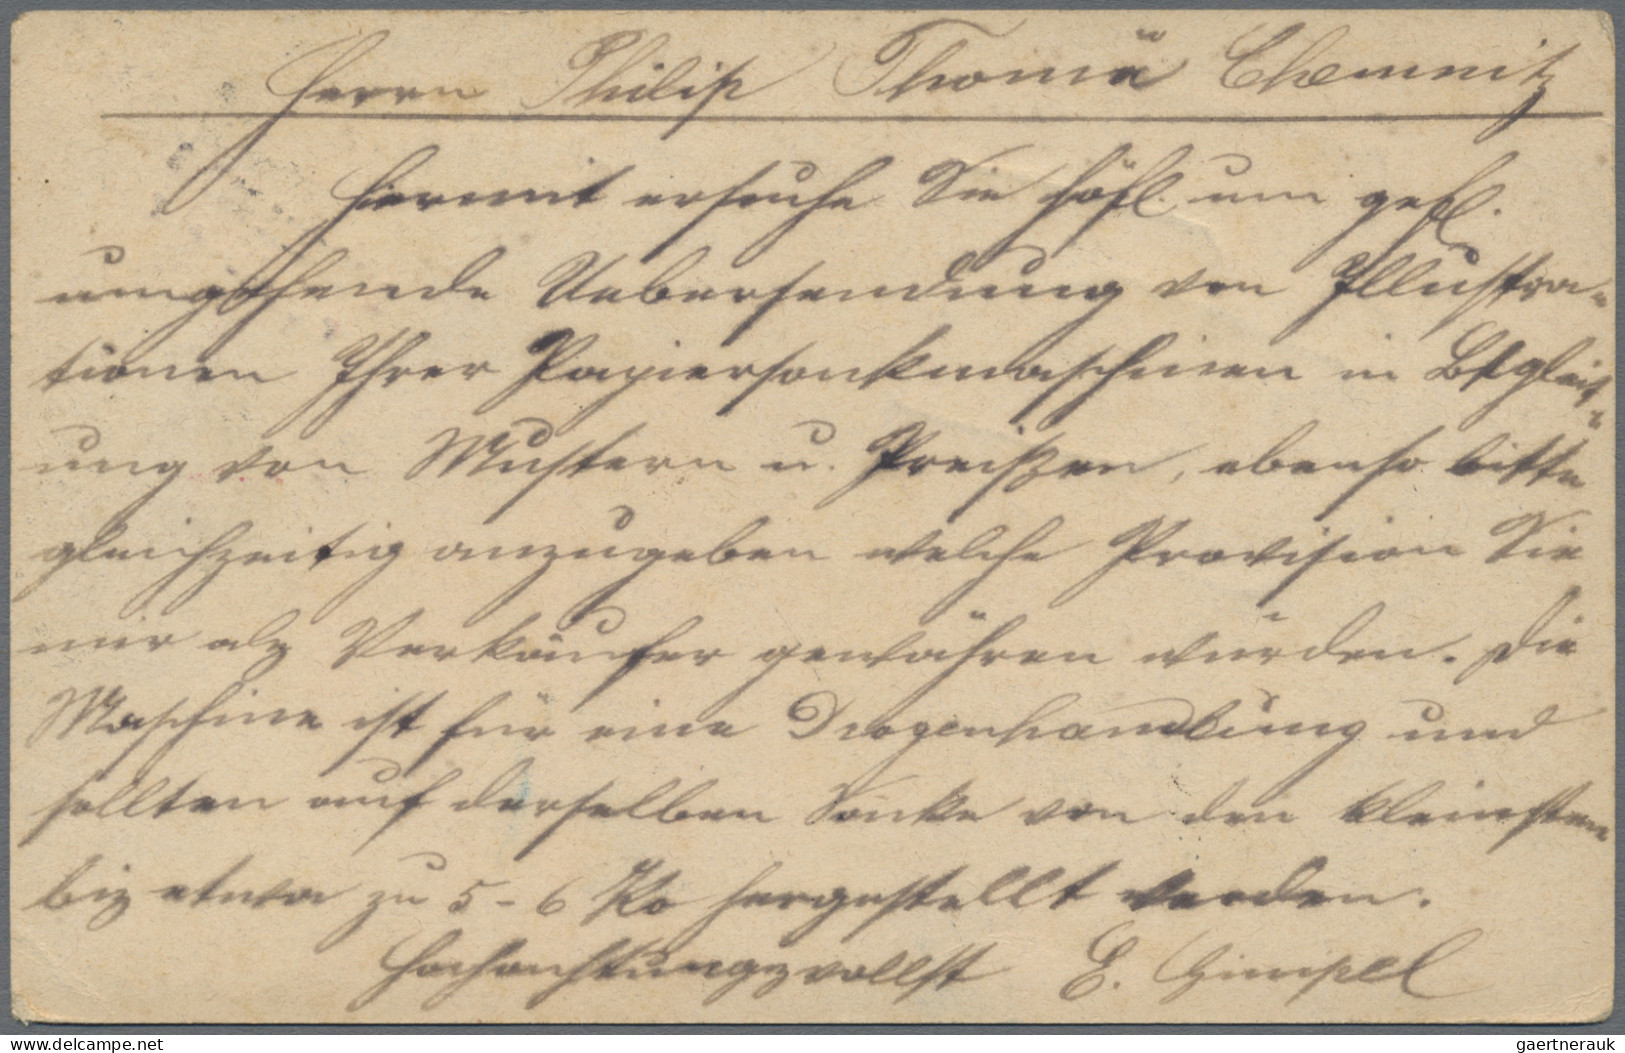 Herrn Philip Thomä Chemnitz
Hiermit ersuche Sie höfl. um gefl.
umgehende Uebersendung von Illustra-
tionen Ihrer Papiersackmaschinen in Begleit-
ung von Mustern u. Preißen, ebenso bitte
gleichzeitig anzugeben welche Provision Sie
mir als Verkäufer gewähren würden. Die
Maschine ist für eine Drogenhandlung und
sollten auf derselben Säcke von den kleinsten
bis etwa zu 5-6 Ko hergestellt werden.
Hochachtungsvollst E. Gimpel
delcampe.net
gaertnerauk